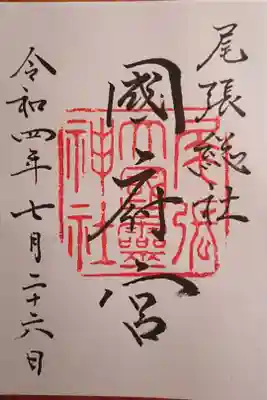 尾張総社
國府宮
尾張
大國靈
神社
令和四年七月二十六日